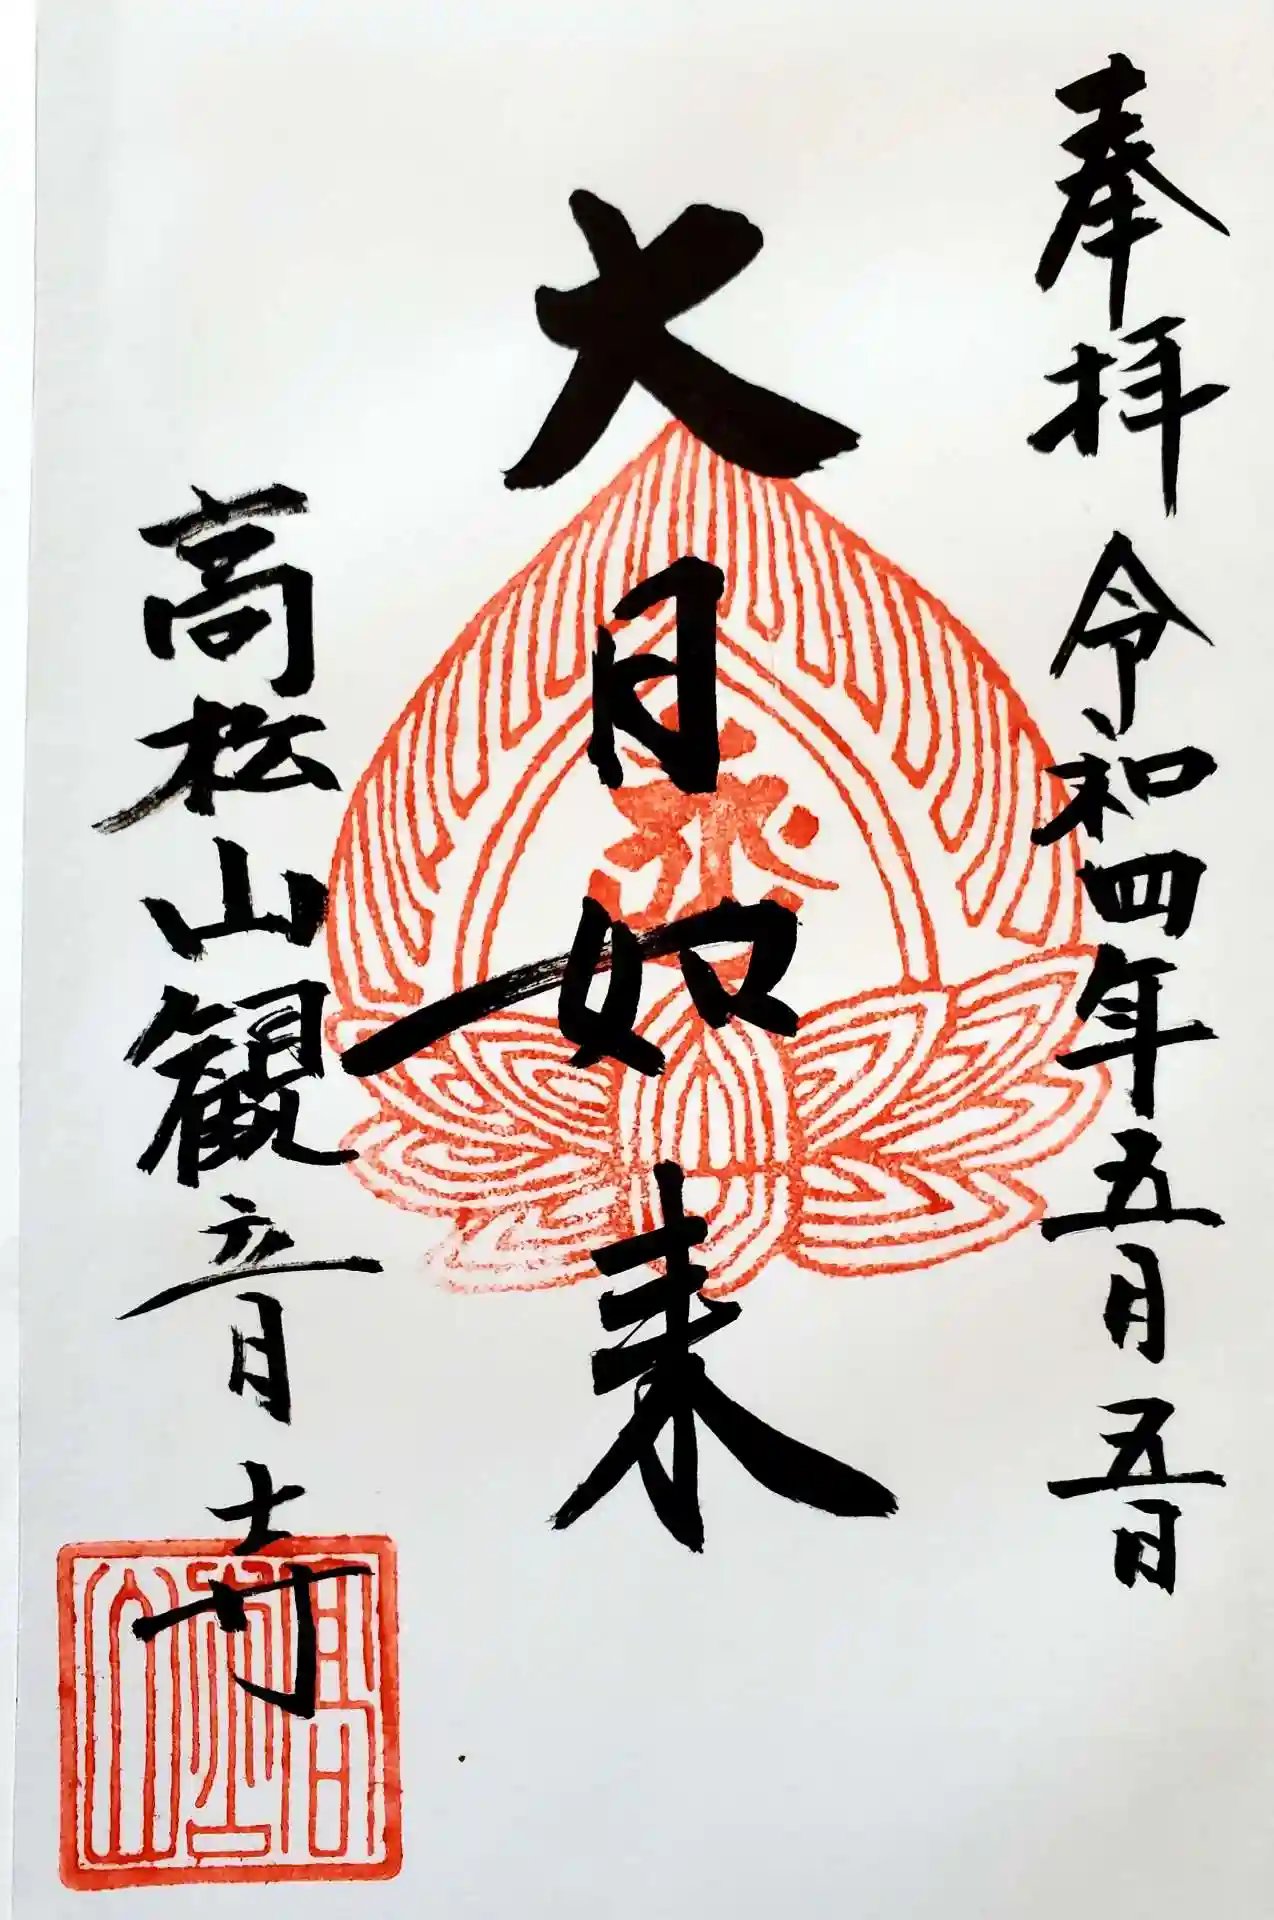 奉拝 令和四年五月五日
大日如来
高松山観音寺
高松山